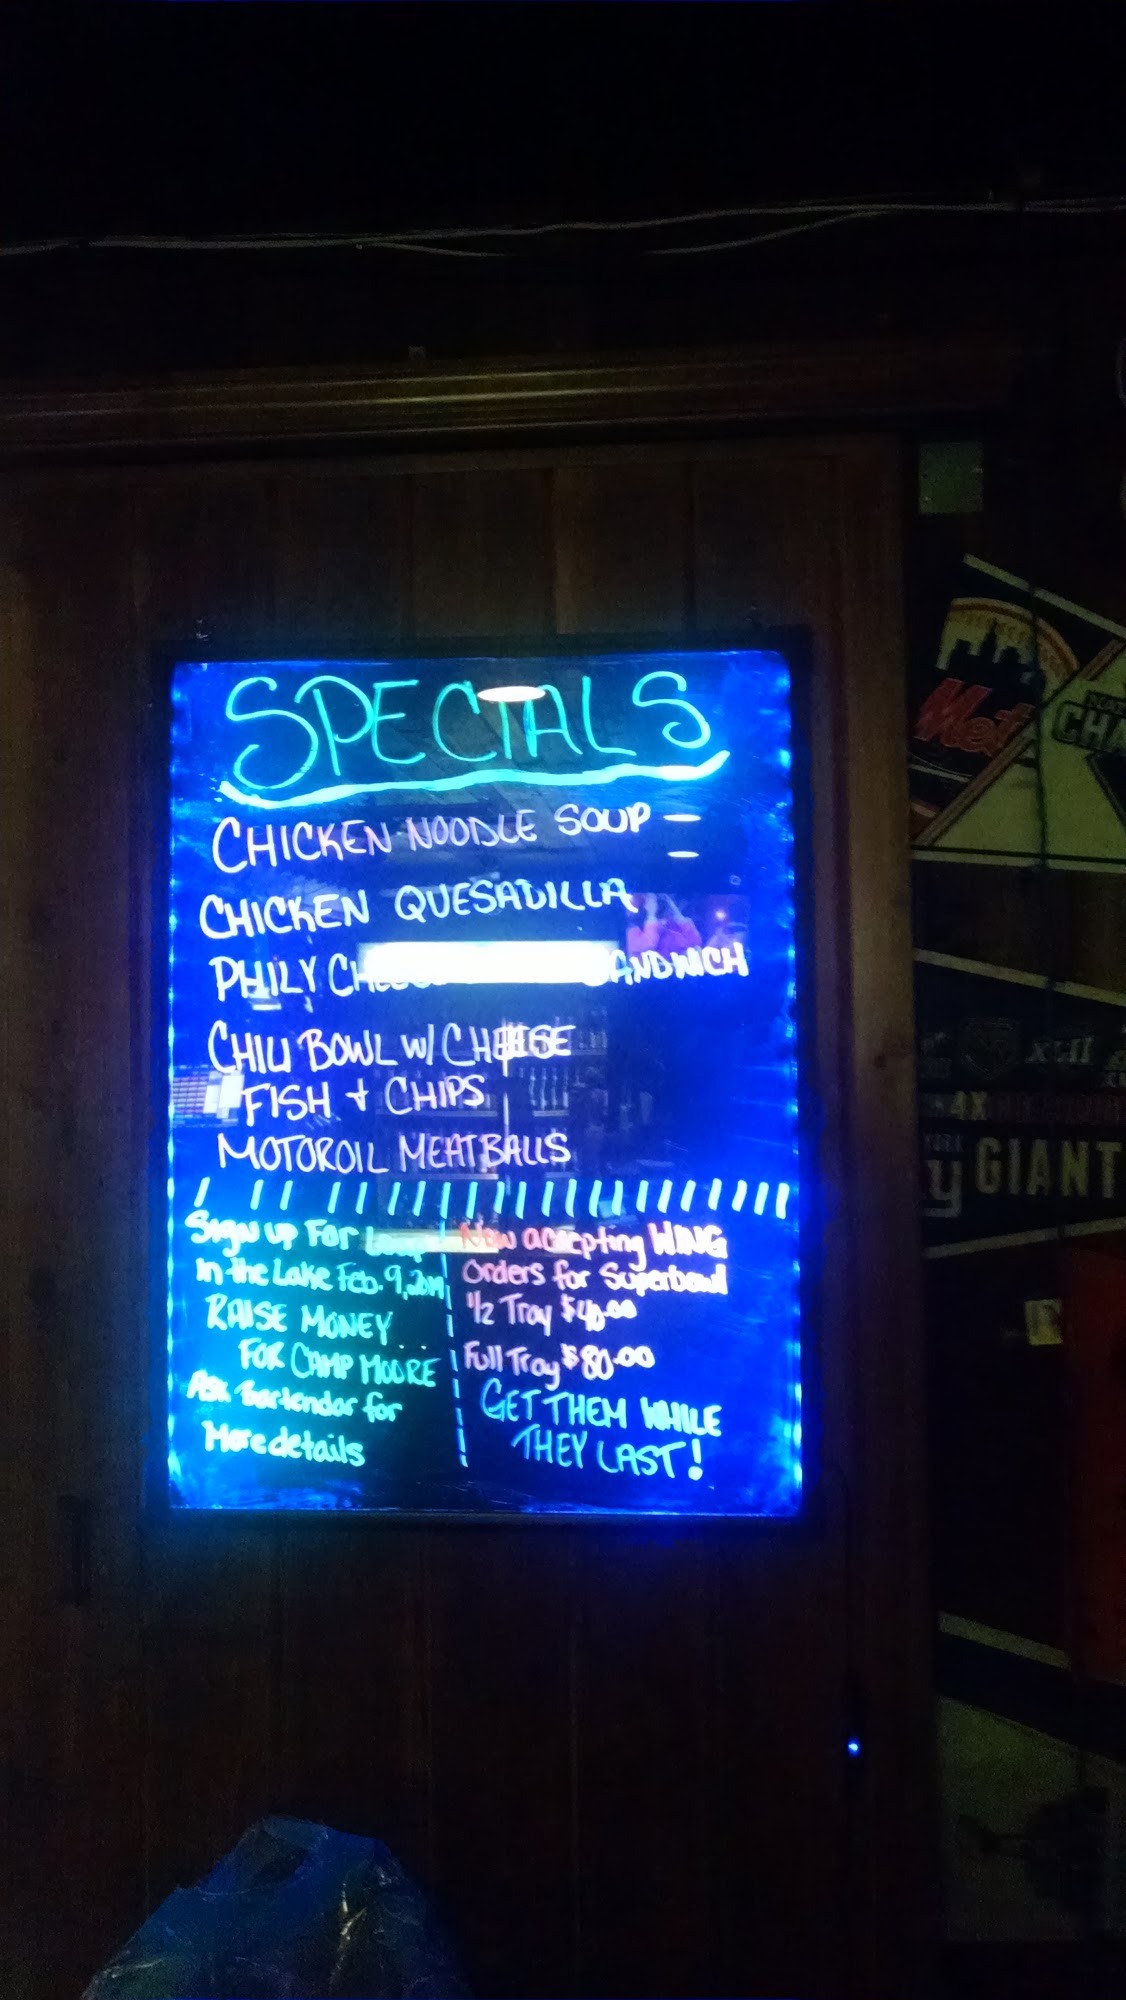 SPECIALS
CHICKEN NOODLE SOUP
CHICKEN QUESADILLA
PHILY
CHILI BOWL W/ CHEESE
FISH + CHIPS
MOTOROIL MEATBALLS
Sign up For Leap
in the Lake Feb. 9, 2019
RAISE MONEY
FOR CAMP MOORE
Ask Bartendar for
More details
Now accepting WING
Orders for Superbowl
1/2 Tray $40.00
Full Tray $80.00
GET THEM WHILE
THEY LAST!
Mets
4X
GIANT